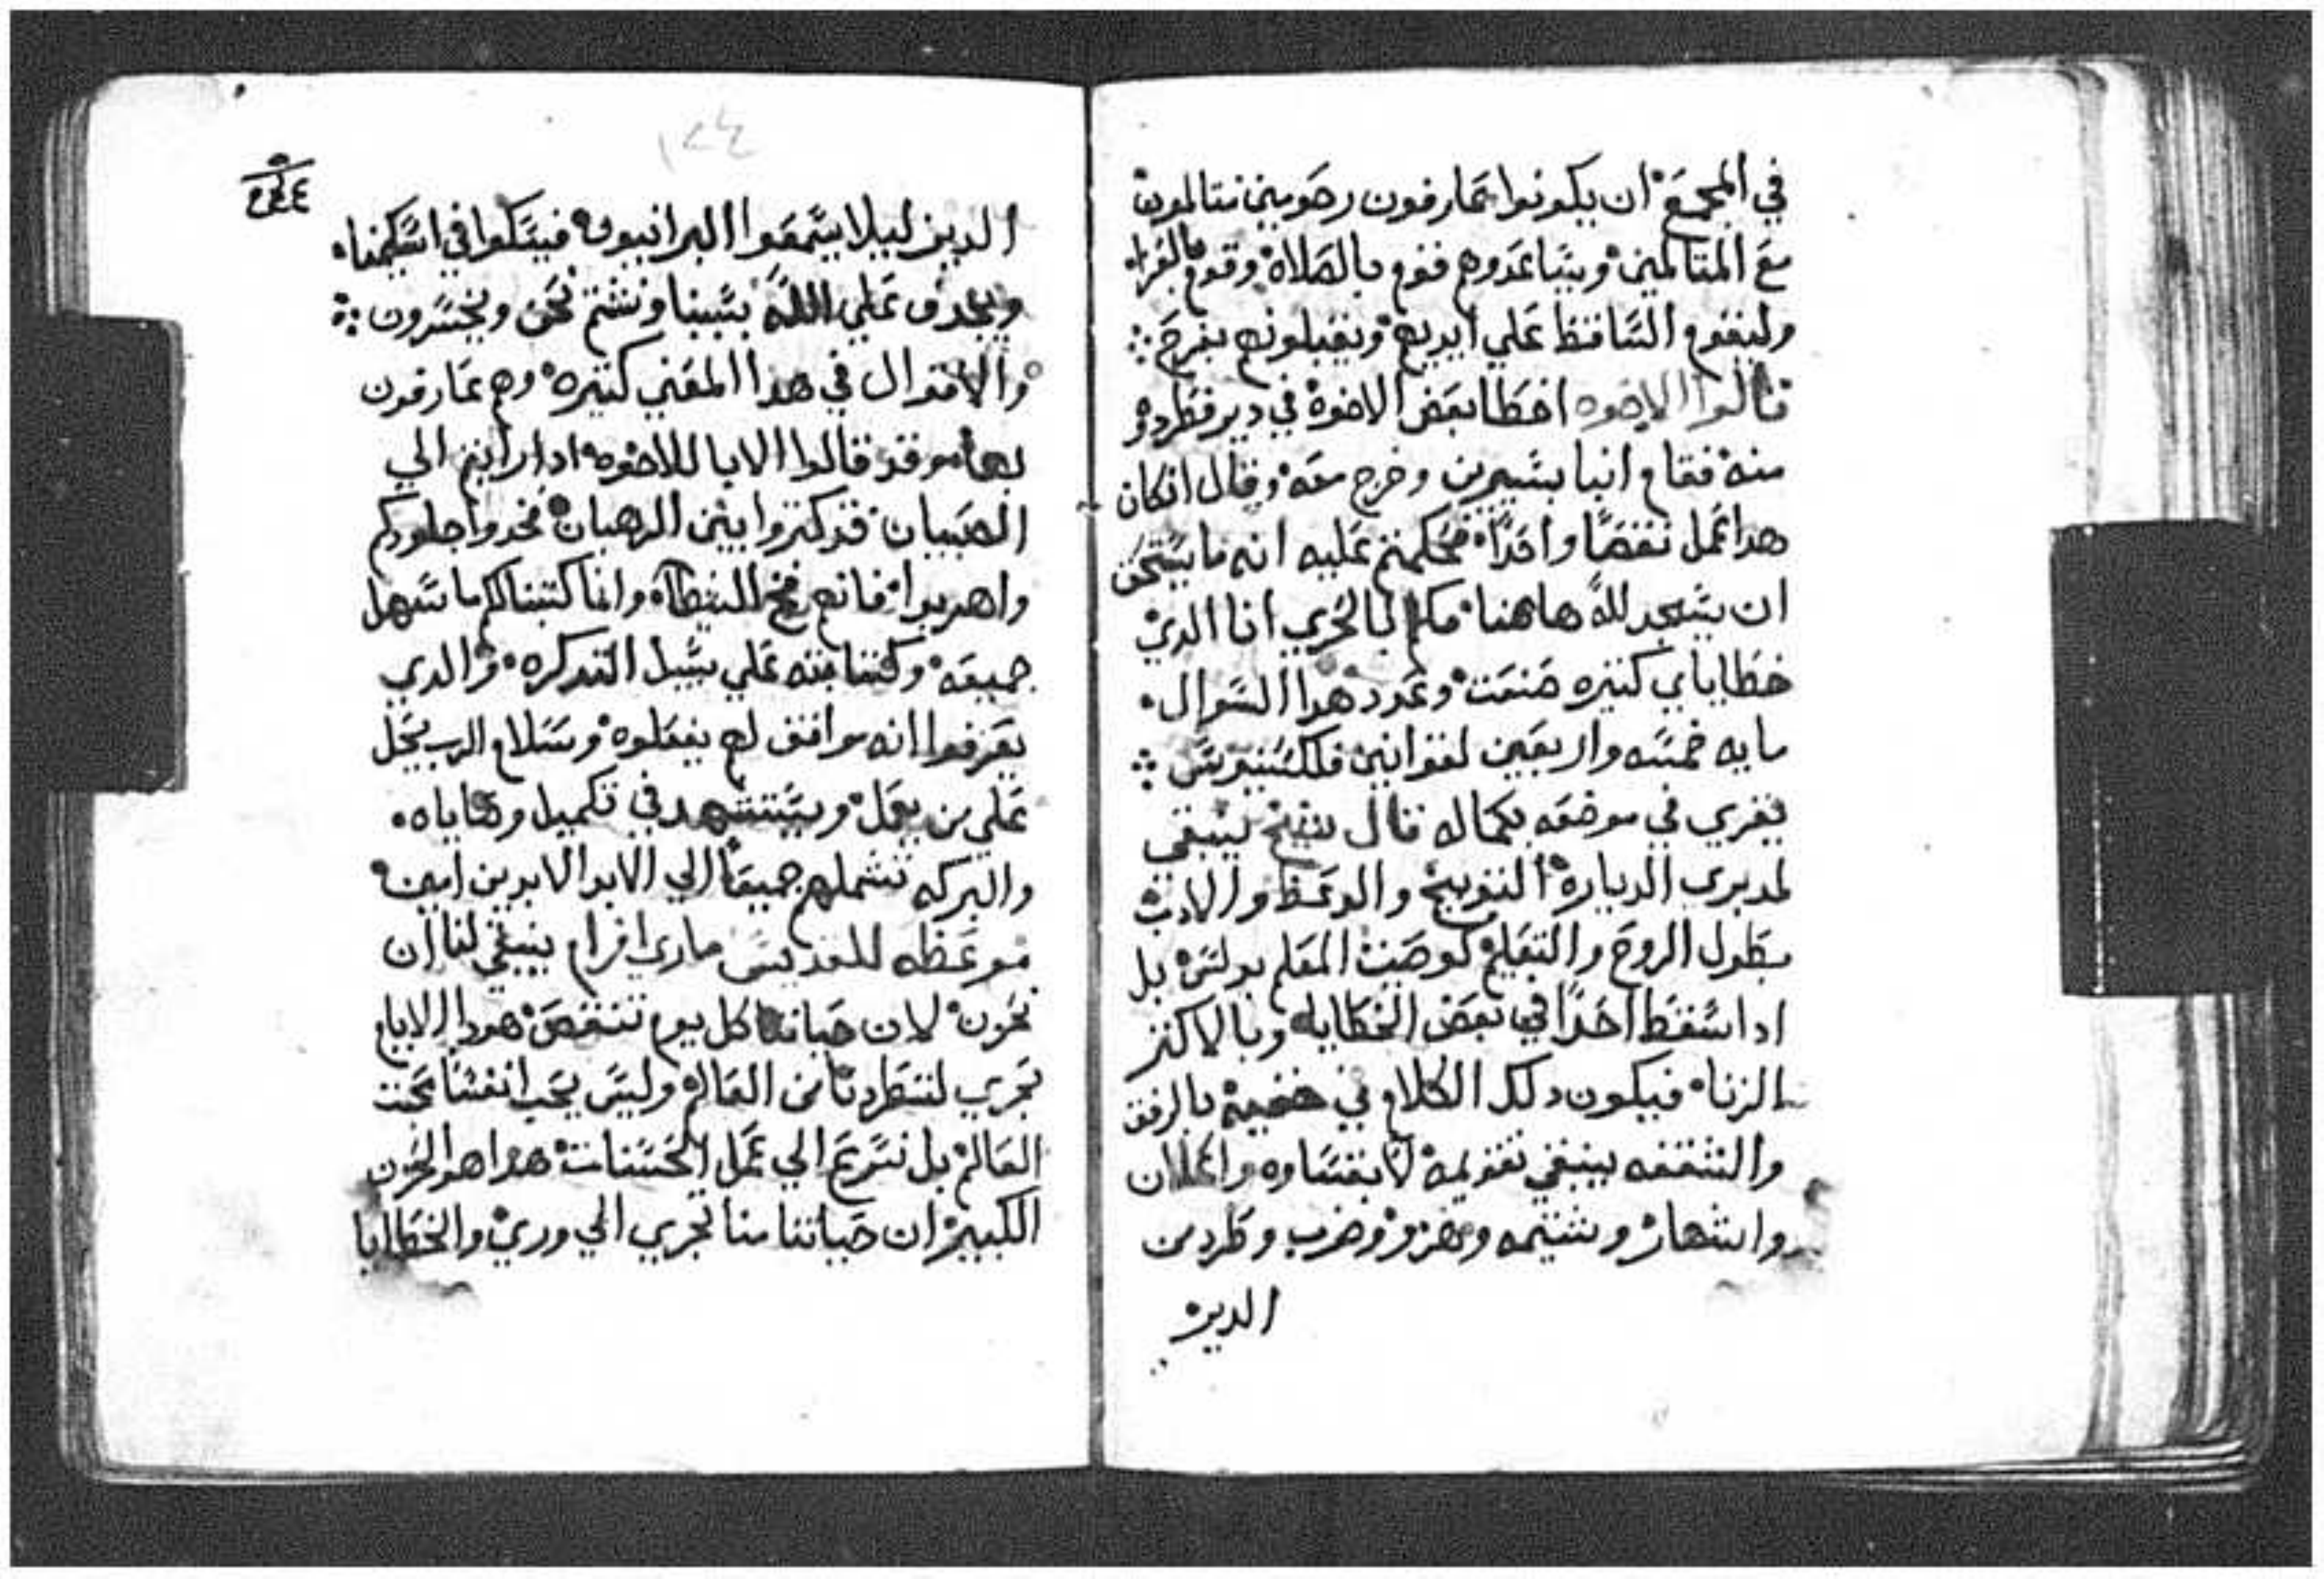 في المجمع ان يكونوا عارفون رحومين متالمون
مع المتالمين ويساعدوهم فقوم بالصلاه وقوم بالقراه
وليقوم الساقط علي ايديهم ويقبلونه بفرح
قالوا الاخوه اخطا بعض الاخوه في دير فطردوه
منه فقام انبا بيسيرين وخرج معه وقال ان كان
هدا عمل نقصا واحدا فحكمتم عليه انه ما يستحق
ان يسجد لله هاهنا فكم بالحري انا الدي
خطاياي كثيره صنعت وعدد هدا السوال
مايه خمسه واربعين لقوانين فلكسينيرس
يقري في موضعه بكماله قال شيخ ينبغي
لمدبري الدياره التوبيخ والوعظ والادب
بطول الروح والتعليم كوصيت المعلم بولس بل
ادا سقط احدا في بعض الخطايا وبالاكثر
الزنا فيكون دلك الكلام في خفيه بالرفق
والشفقه ينبغي تقويمه لا بقساوه واعلان
واشهار وشتيمه وهزو وضرب وطرد من
الدير
١٢٤
الدير ليلا يسمعوا البرانيون فيشكوا في اسكيمنا
ويجدف علي الله بسببنا ونشتم نحن ونخسرون
والاقوال في هدا المعني كثيره وهم عارفون
بها وقد قالوا الابا للاخوه ادا رايتم الي
الصبيان قد كتروا بين الرهبان فخدوا جلودكم
واهربوا فانهم فخ للشيطان وانما كتبنا لكم ما سهل
جميعه وكتبنا منه علي سبيل التدكره والدي
يعرفوا انه موافق لهم يفعلوه وسلام الرب يحل
علي من يعمل ويستشهد في تكميل وصاياه
والبركه تشملهم جميعا الي الابد الابدين امين
موعظه للقديس ماري افرام ينبغي لنا ان
نحزن لان حياتنا كل يوم تنقص هودا الايام
تجري لتطردنا من العالم وليس يحب انفسنا تحت
العالم بل نسرع الي عمل الحسنات هدا هو الحزن
الكبير ان حياتنا منا تجري الي وري والخطايا